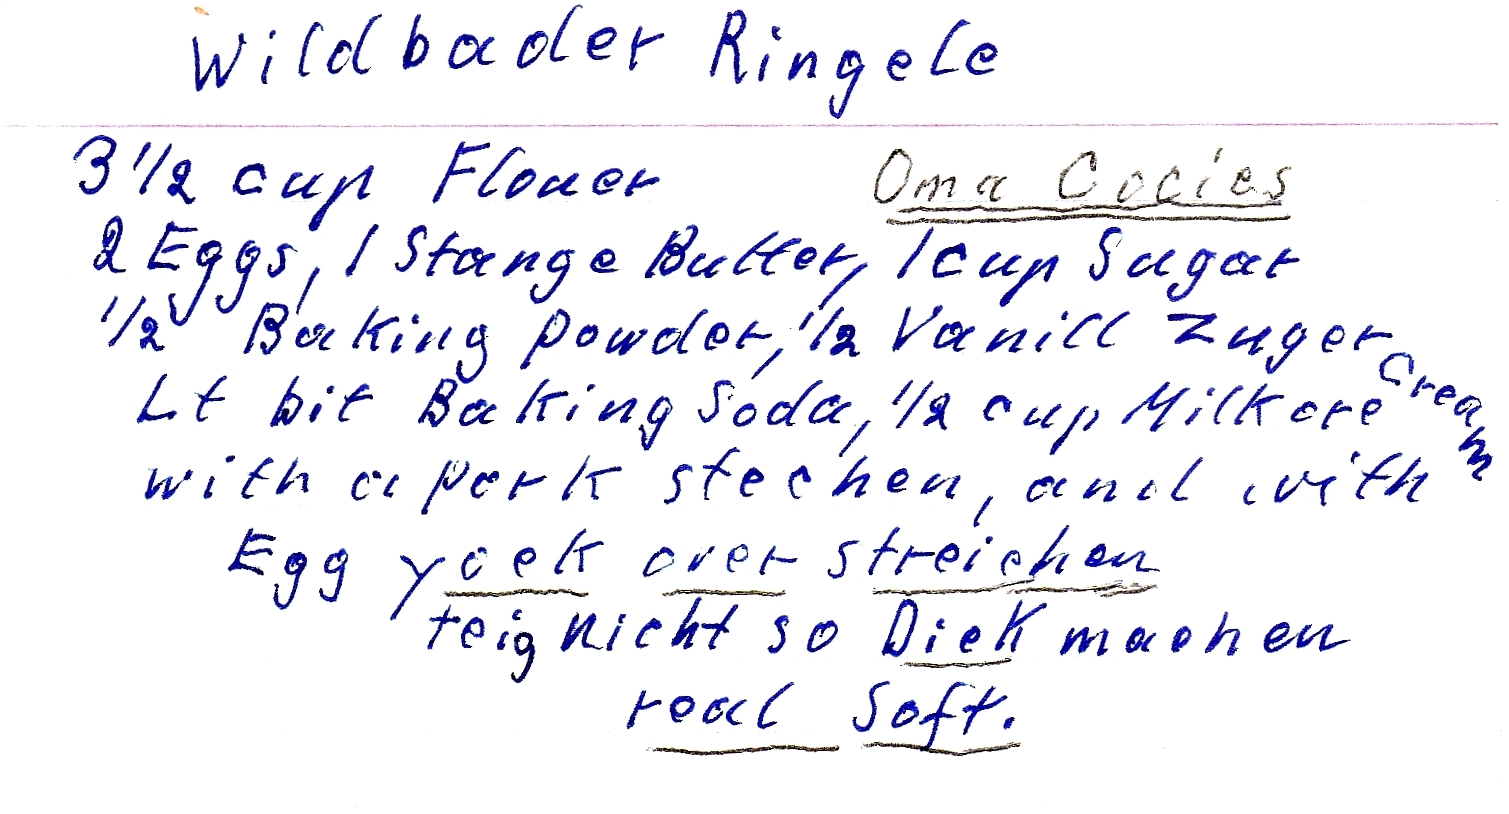 Wildbader Ringele
3 1/2 cup Flouer
Oma Cocies
2 Eggs, 1 Stange Butter, 1 cup Sugar
1/2 Baking powder, 1/2 Vanill Zuger
Lt bit Baking Soda, 1/2 cup Milk ore Cream
with a pork stechen, and with
Egg yoek over streichen
teig nicht so Dick machen
real soft.